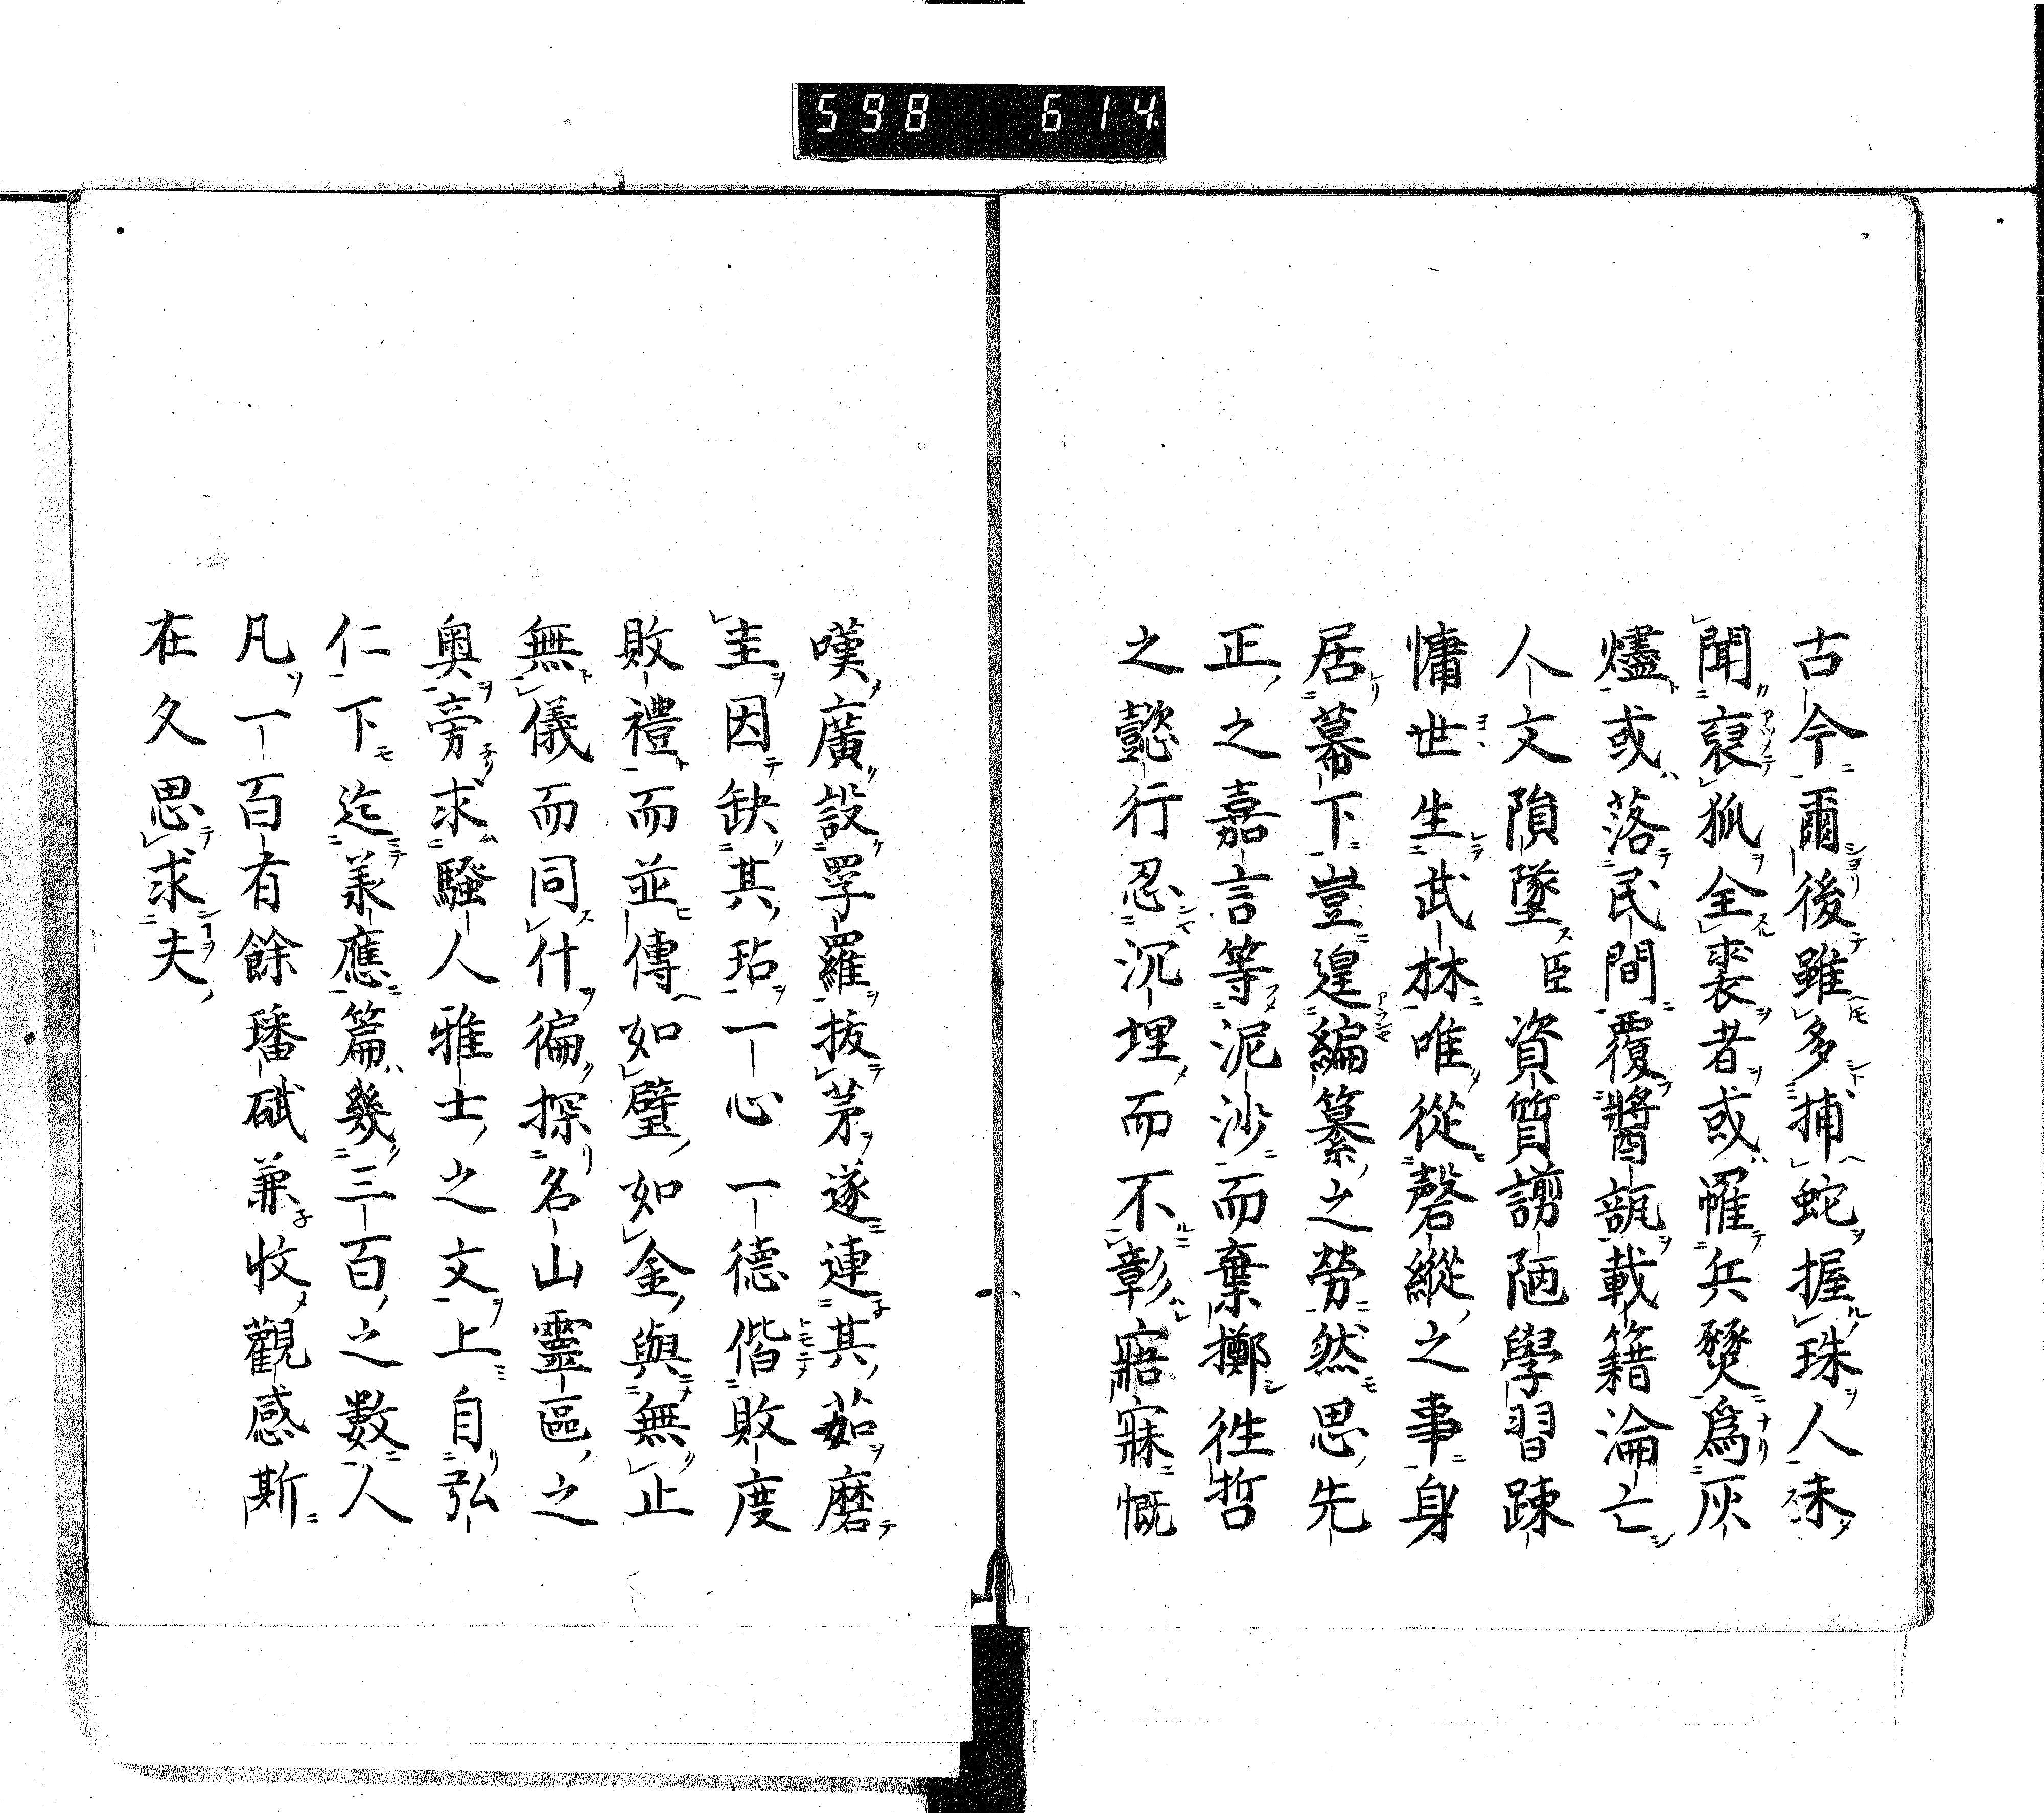 598 614
古今爾後雖多捕蛇握珠人未
聞裒狐全裘者或罹兵燹爲灰
燼或落民間覆醬瓿載籍淪亡
人文隕墜臣資質謭陋學習踈
慵世生武林唯從磬縱之事身
居幕下豈遑編纂之勞然思先
正之嘉言等泥沙而棄擲徃哲
之懿行忍沉埋而不彰寤寐慨
嘆廣設罦羅拔茅遂連其茹磨
圭因缺其玷一心一德偕敗度
敗禮而並傳如璧如金與無止
無儀而同什徧探名山靈區之
奧旁求騷人雅士之文上自弘
仁下迄羕應篇幾三百之數人
凡一百有餘璠碔兼收觀感斯
在久思求夫